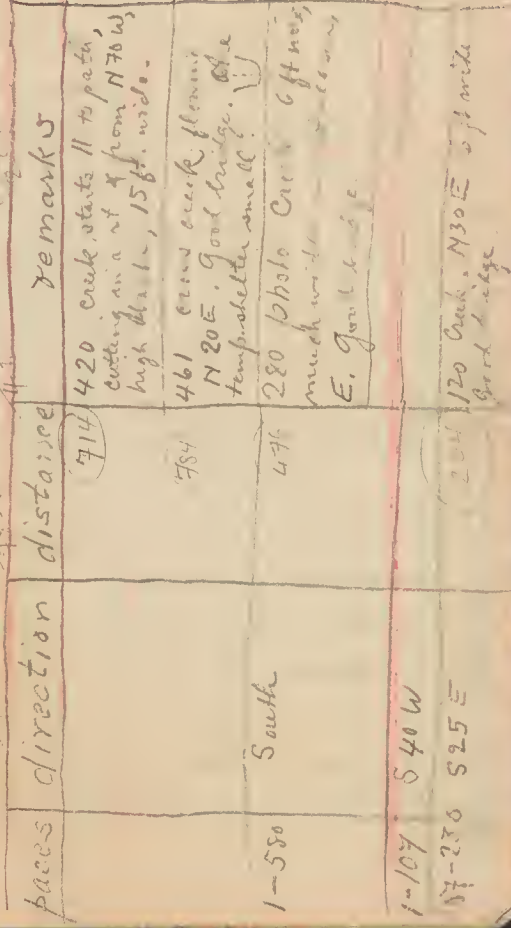 paces direction distance remarks
714 420 creek starts 11 to path,
cutting in a rt from N70W,
high, 15 ft. wide.
784 461 cross creek flowing
N 20 E. Good bridge.
temp. shelter small.
1-580 South 476 280 photo Creek 6 ft
much
E. Good
1-107 S 40 W
107-230 S25 E 120 Creek. N30E ft wide
good bridge